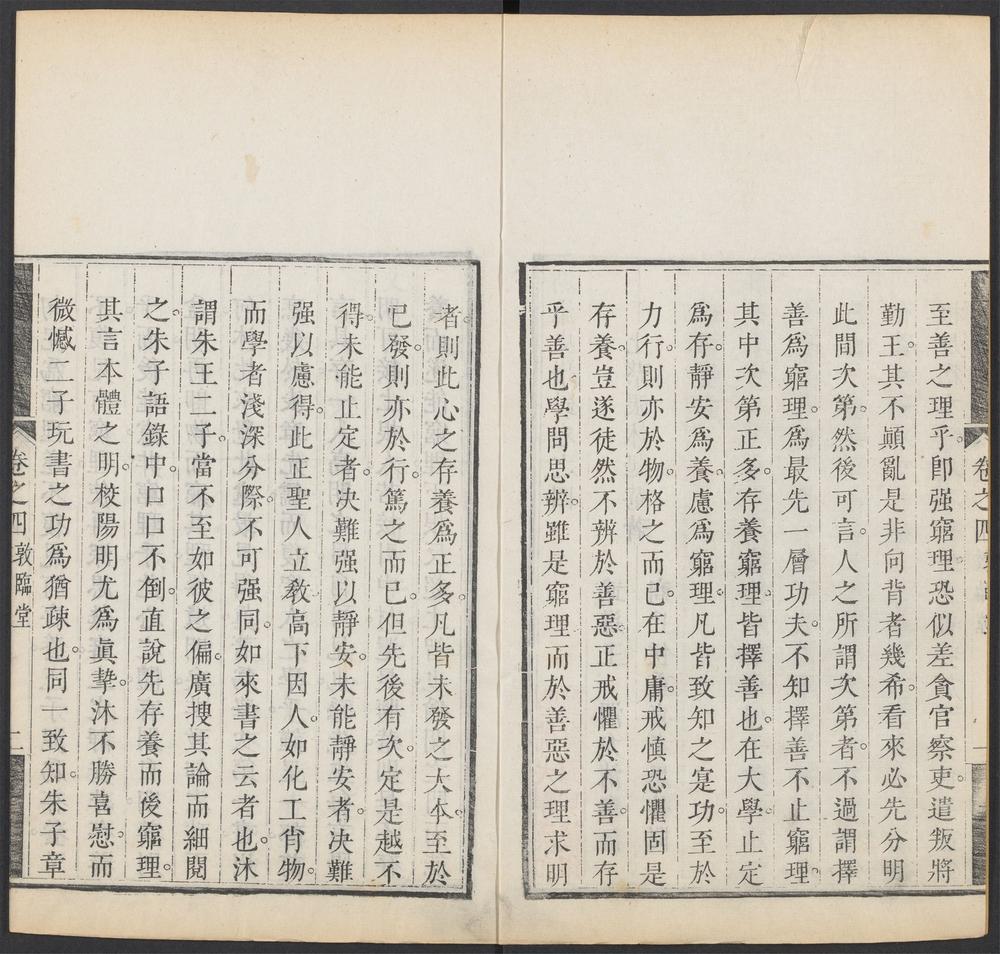 至善之理乎。卽强窮理。恐似差貪官察吏。遣叛將
勤王。其不顚亂是非向背者幾希。看來必先分明
此間次第。然後可言。人之所謂次第者。不過謂擇
善爲窮理。爲最先一層功夫。不知擇善不止窮理。
其中次第正多。存養窮理。皆擇善也。在大學。止定
爲存。靜安爲養。慮爲窮理。凡皆致知之寔功。至於
力行。則亦於物。格之而已。在中庸。戒愼恐懼固是
存養。豈遂徒然不辨於善惡。正戒懼於不善。而存
乎善也學問思辨。雖是窮理而於善惡之理求明
者。則此心之存養爲正多。凡皆未發之大本。至於
已發。則亦於行。篤之而已。但先後有次。定是越不
得。未能止定者。决難强以靜安。未能靜安者。决難
强以慮得。此正聖人立敎高下因人。如化工肖物。
而學者淺深分際。不可强同。如來書之云者也。沐
謂朱王二子。當不至如彼之偏。廣搜其論而細閱
之。朱子語錄中。口口不倒。直說先存養而後窮理。
其言本體之明。校陽明尤爲眞摯。沐不勝喜慰。而
微憾二子玩書之功爲猶疎也。同一致知。朱子章
卷之四
敦臨堂
二
卷之四